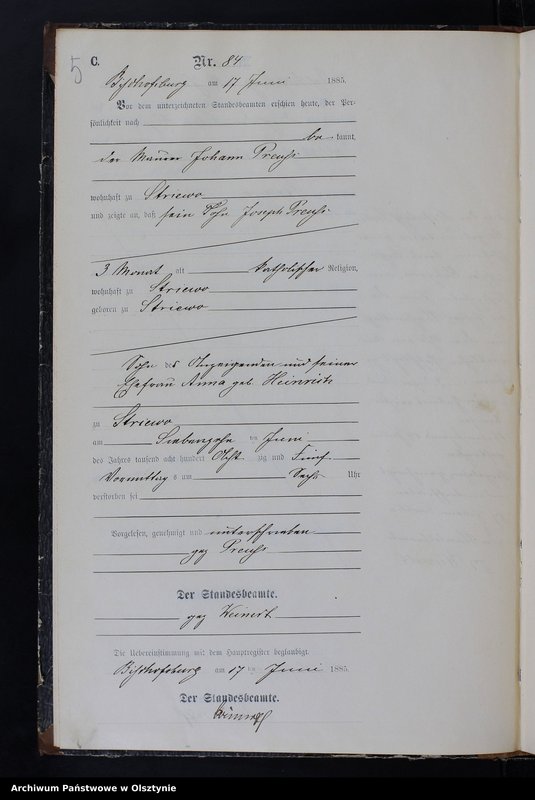 5
C. Nr. 84
Bischofsburg am 17 Juni 1885.
Vor dem unterzeichneten Standesbeamten erschien heute, der Per-
sönlichkeit nach
be kannt,
der Maurer Johann Preuß
wohnhaft zu Striewo
und zeigte an, daß sein Sohn Joseph Preuß
3 Monat alt katholischer Religion,
wohnhaft zu Striewo
geboren zu Striewo
Sohn des Anzeigenden und seiner
Ehefrau Anna geb. Heinrich
zu Striewo
am Siebenzehn ten Juni
des Jahres tausend acht hundert Acht zig und Fünf
Vormittag s um Sechs Uhr
verstorben sei
Vorgelesen, genehmigt und unterschrieben
gez Preuß
Der Standesbeamte.
gez Weinert
Die Uebereinstimmung mit dem Hauptregister beglaubigt
Bischofsburg am 17 ten Juni 1885.
Der Standesbeamte.
Archiwum Państwowe w Olsztynie